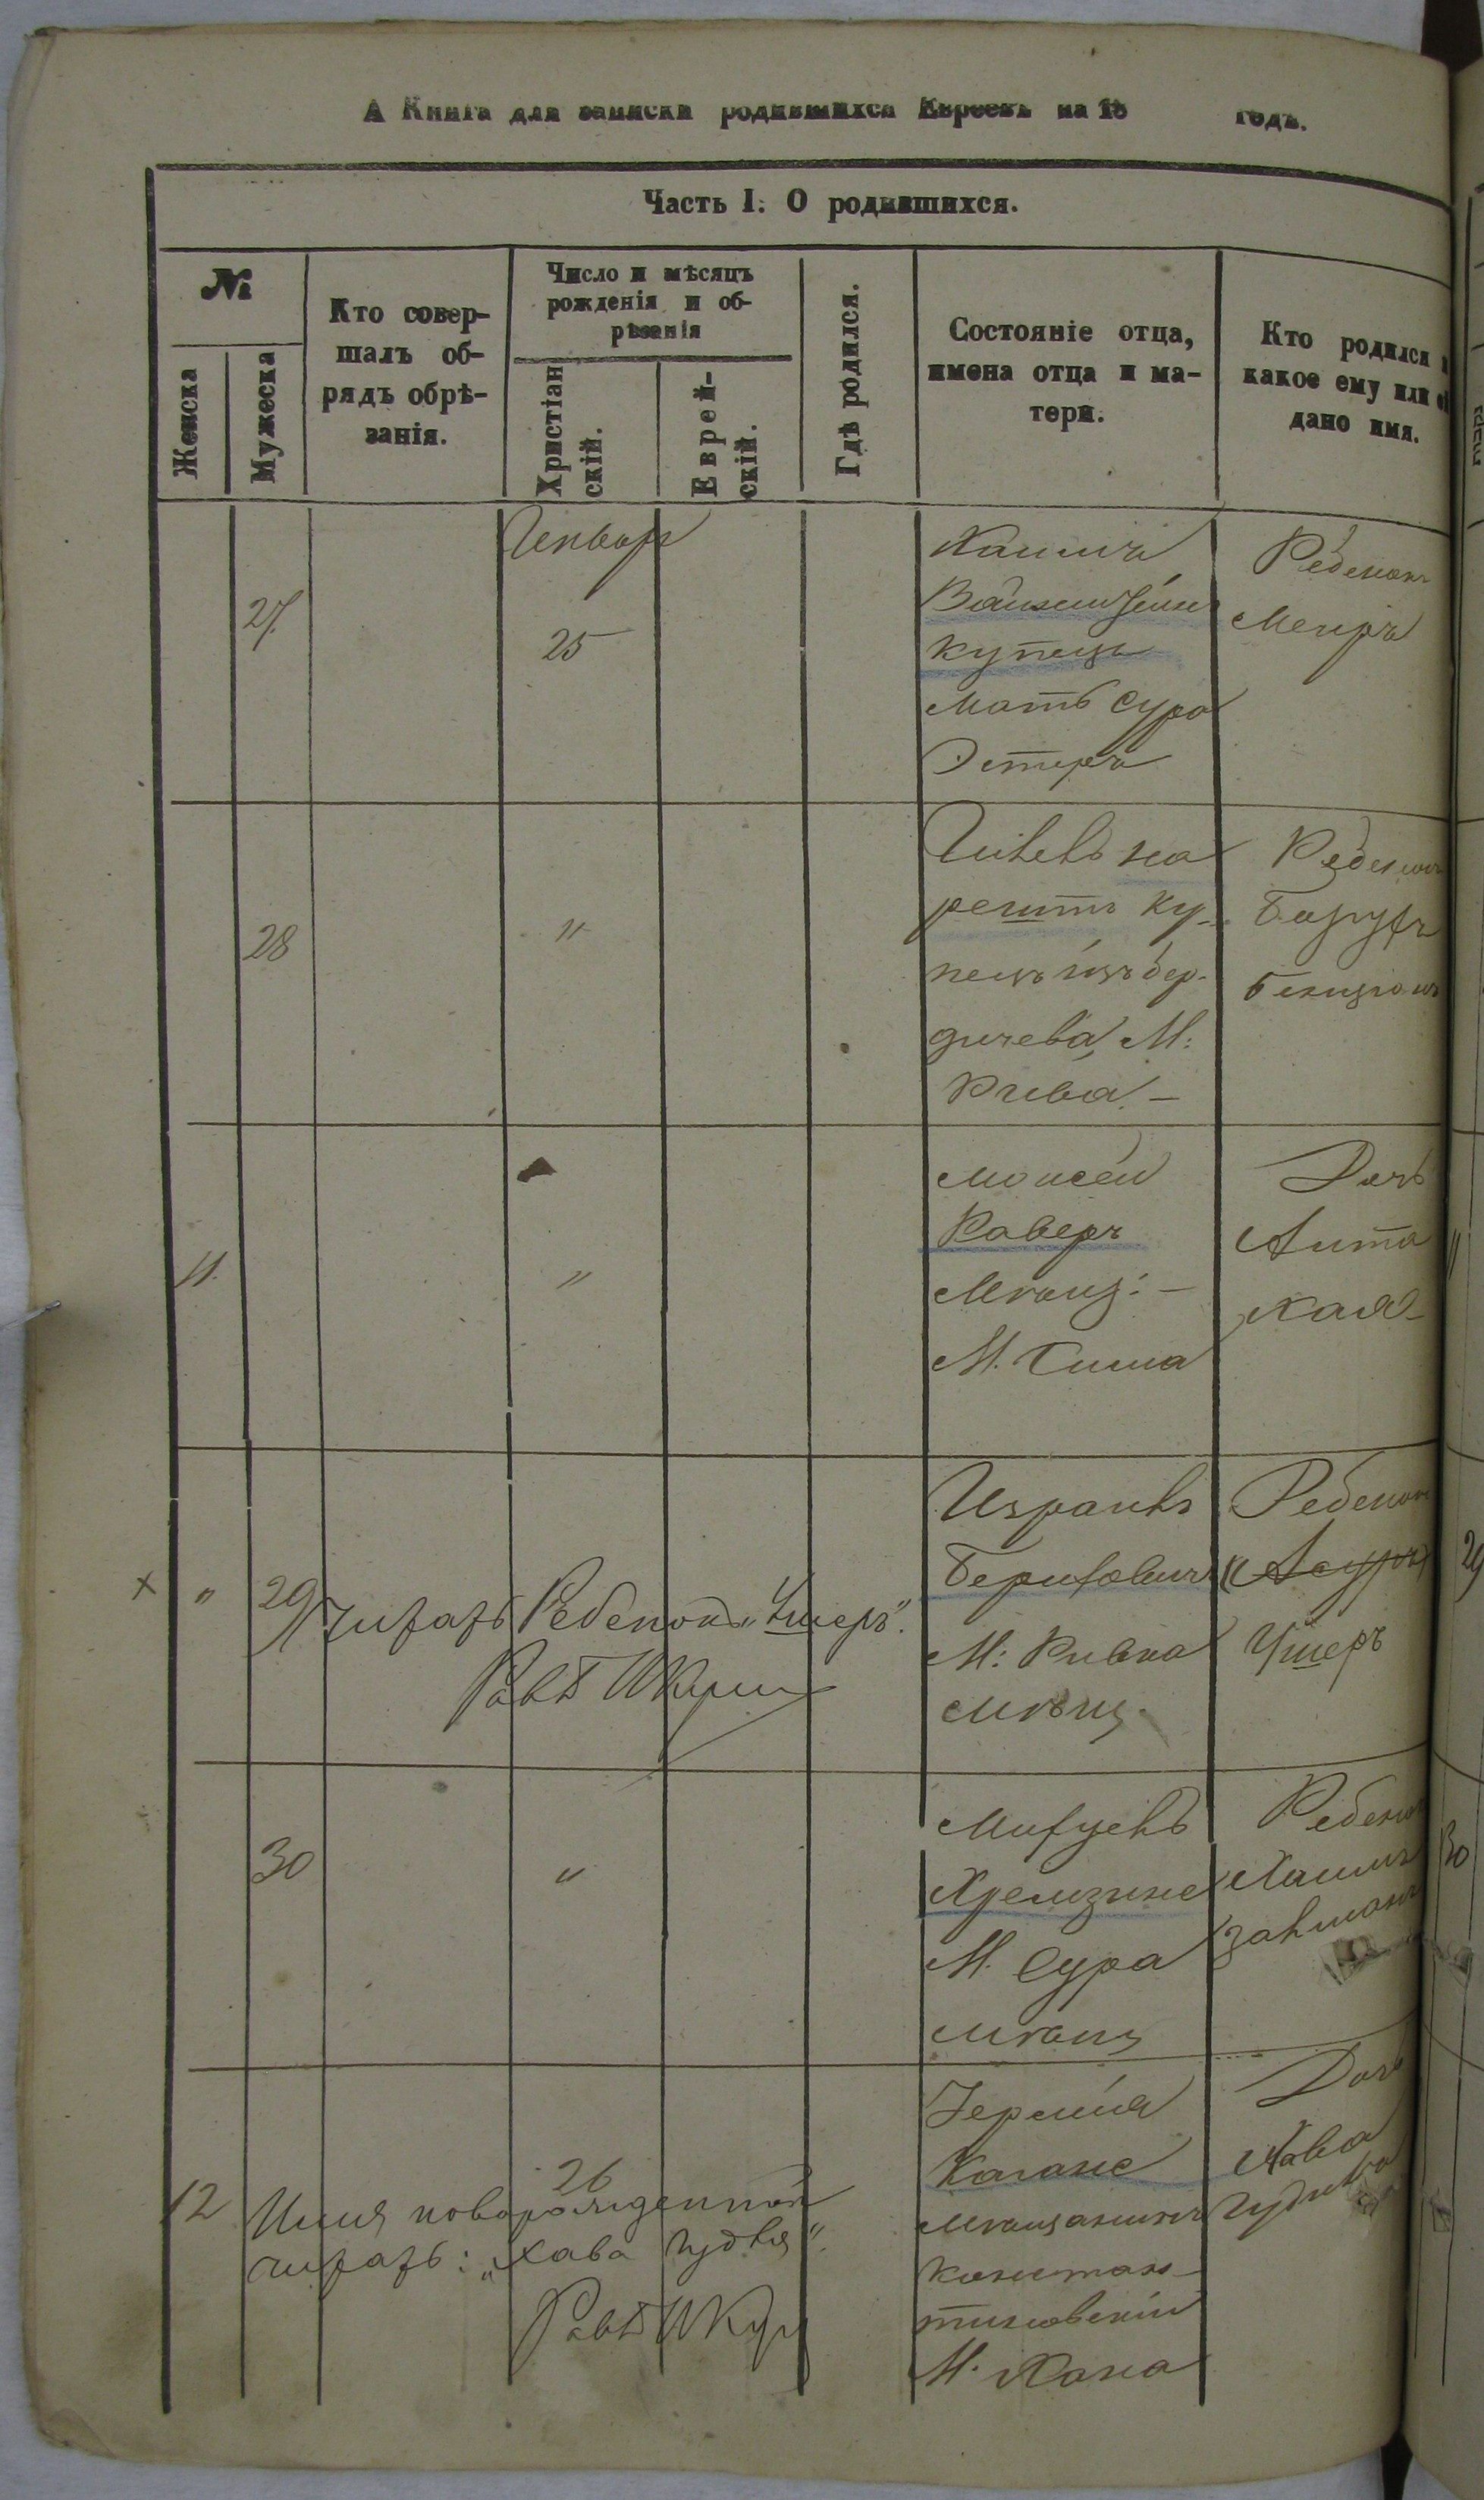 А Книга для записки родившихся Евреевъ на 18 годъ.
Часть I. О родившихся.
№
Женска
Мужеска
Кто совер-
шалъ об-
рядъ обрѣ-
занія.
Число и мѣсяцъ
рожденія и об-
рѣзанія
Христіан
скій.
Еврей-
скій.
Гдѣ родился.
Состояніе отца,
имена отца и ма-
тери.
Кто родился и
какое ему или ей
дано имя.
27.
Генваря
25
Хаимъ
купецъ
мать Сура
Эстеръ
Ребенокъ
Меиръ
28
"
ку-
пецъ изъ бер-
дичева, М:
Рива. –
Ребенокъ
Барухъ
Бенціонъ
11.
"
Моисей
Раверъ
Мѣщ: –
М. Сима
Дочь
Аита
Хая
"
29
Читать Ребенокъ „Ушеръ".
РавВ Шкум
Израиль
Бериховичъ
М: Ривка
мѣщ.
Ребенокъ
(Асуръ)
Ушеръ
30
"
Михуель
М. Сура
мѣщ
Ребенокъ
Хаимъ
Залманъ
12
26
Имя новорожденной
читать: „Хава Гудля".
Іеремія
Каганъ
мѣщанинъ
констан-
тиновскій
М. Хана
Дочь
Хава
29
30